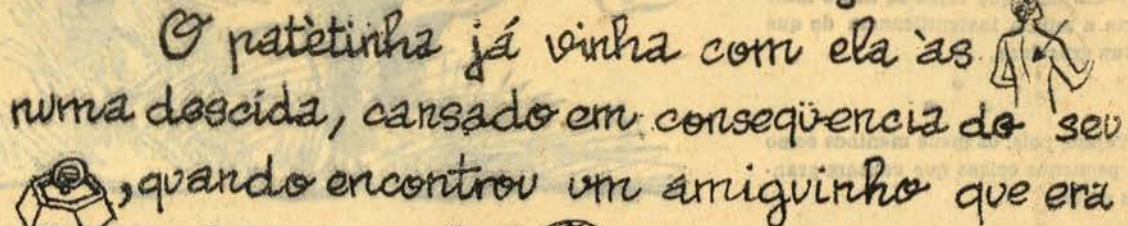 O patètinha já vinha com ela às
numa descida, cansado em conseqüencia do seu
, quando encontrou um amiguinho que era